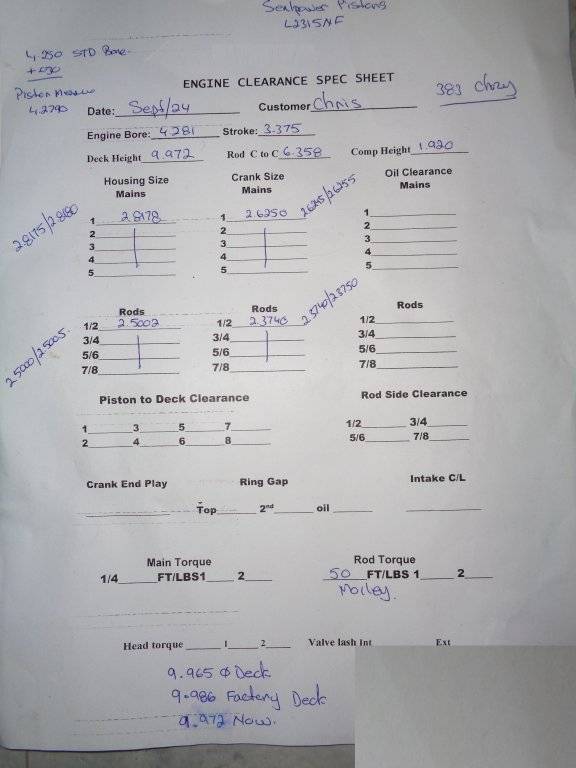 Sealpower Pistons
L2315NF
4.250 STD Bore.
+.030
Piston Measure
4.2790
383 Chry
ENGINE CLEARANCE SPEC SHEET
Date: Sept/24 Customer Chris
Engine Bore: 4.281 Stroke: 3.375
Deck Height 9.972 Rod C to C 6.358 Comp Height 1.920
Housing Size Crank Size Oil Clearance
Mains Mains Mains
28175/28180 26245/26255
1 2.8178 1 2.6250 1
2 2 2
3 3 3
4 4 4
5 5 5
Rods Rods Rods
25000/25005 23740/23750
1/2 2.5002 1/2 2.3740 1/2
3/4 3/4 3/4
5/6 5/6 5/6
7/8 7/8 7/8
Piston to Deck Clearance Rod Side Clearance
1 3 5 7 1/2 3/4
2 4 6 8 5/6 7/8
Crank End Play Ring Gap Intake C/L
Top 2nd oil
Main Torque Rod Torque
1/4 FT/LBS1 2 50 FT/LBS 1 2
Morley
Head torque 1 2 Valve lash Int Ext
9.965 Ø Deck
9.986 Factory Deck
9.972 Now.